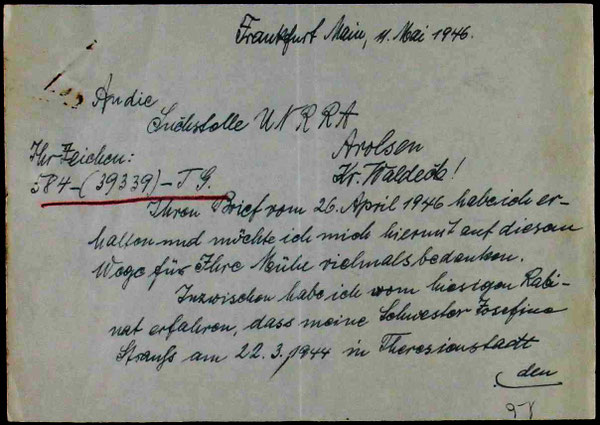 Frankfurt Main, 11. Mai 1946.
An die
Suchstelle UNRRA
Arolsen
Kr. Waldeck!
Ihr Zeichen:
584-(39339)-T G.
Ihren Brief vom 26. April 1946 habe ich er-
halten und möchte ich mich hiermit auf diesem
Wege für Ihre Mühe vielmals bedanken.
Inzwischen habe ich vom hiesigen Rabi-
nat erfahren, dass meine Schwester Josefine
Strauß am 22.3.1944 in Theresienstadt
den